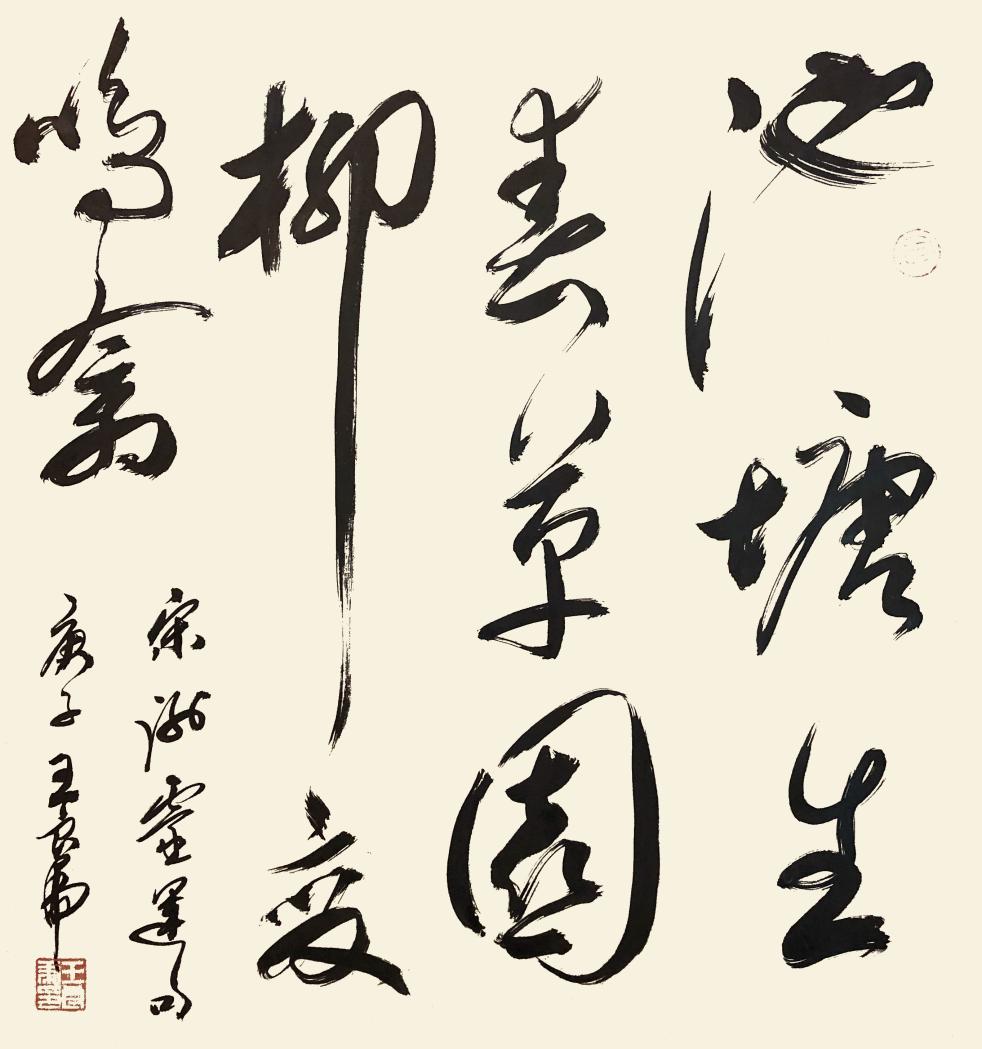 池塘生
春草園
柳变
鳴禽
宋謝靈運句
庚子王良虎